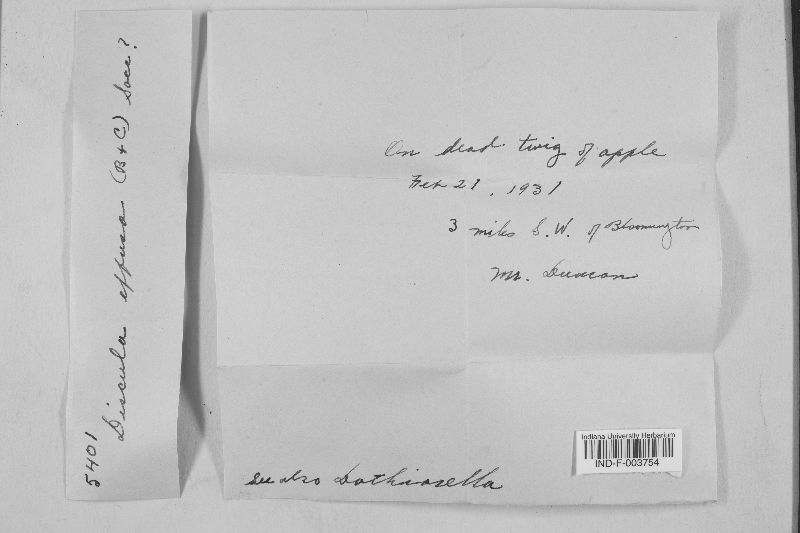 5401
Discula effusa (B+C) Sacc?
On dead twig of apple
Feb 21, 1931
3 miles S.W. of Bloomington
Mr. Duncan
See also Dothiorella
Indiana University Herbarium
IND-F-003754